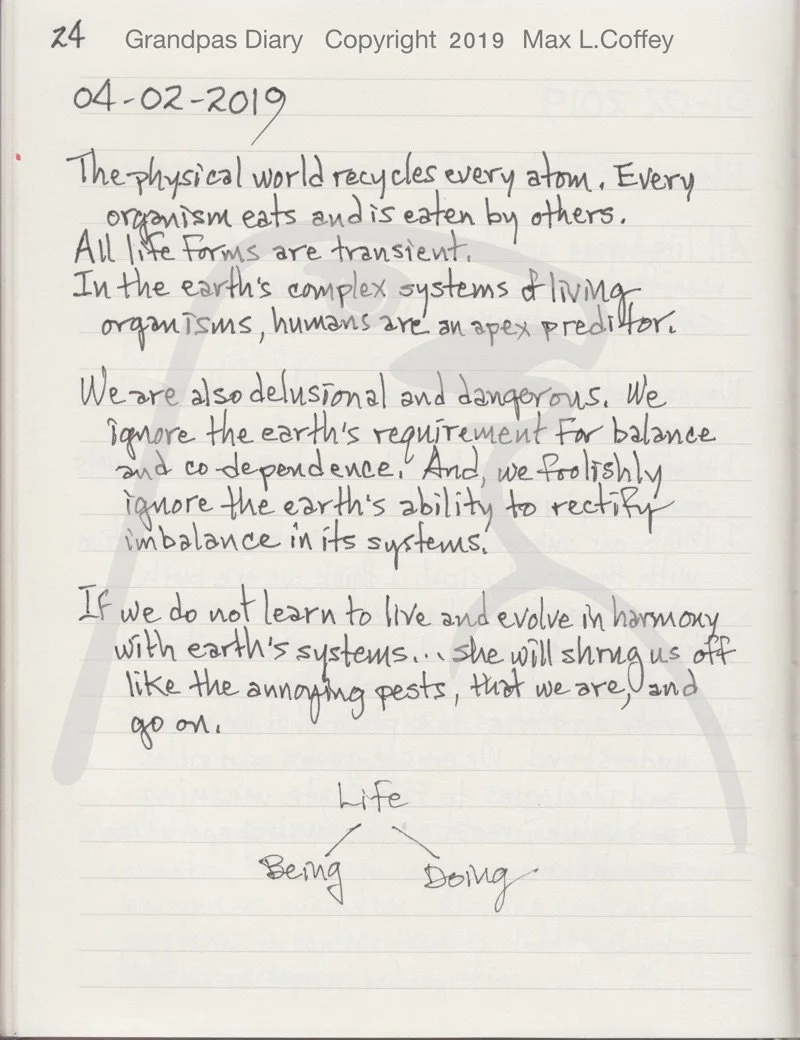 24 Grandpas Diary Copyright 2019 Max L.Coffey
04-02-2019
The physical world recycles every atom. Every
organism eats and is eaten by others.
All life forms are transient.
In the earth's complex systems of living
organisms, humans are an apex preditor.
We are also delusional and dangerous. We
ignore the earth's requirement for balance
and co-dependence. And, we foolishly
ignore the earth's ability to rectify
imbalance in its systems.
If we do not learn to live and evolve in harmony
with earth's systems... she will shrug us off
like the annoying pests, that we are, and
go on.
Life
Being Doing